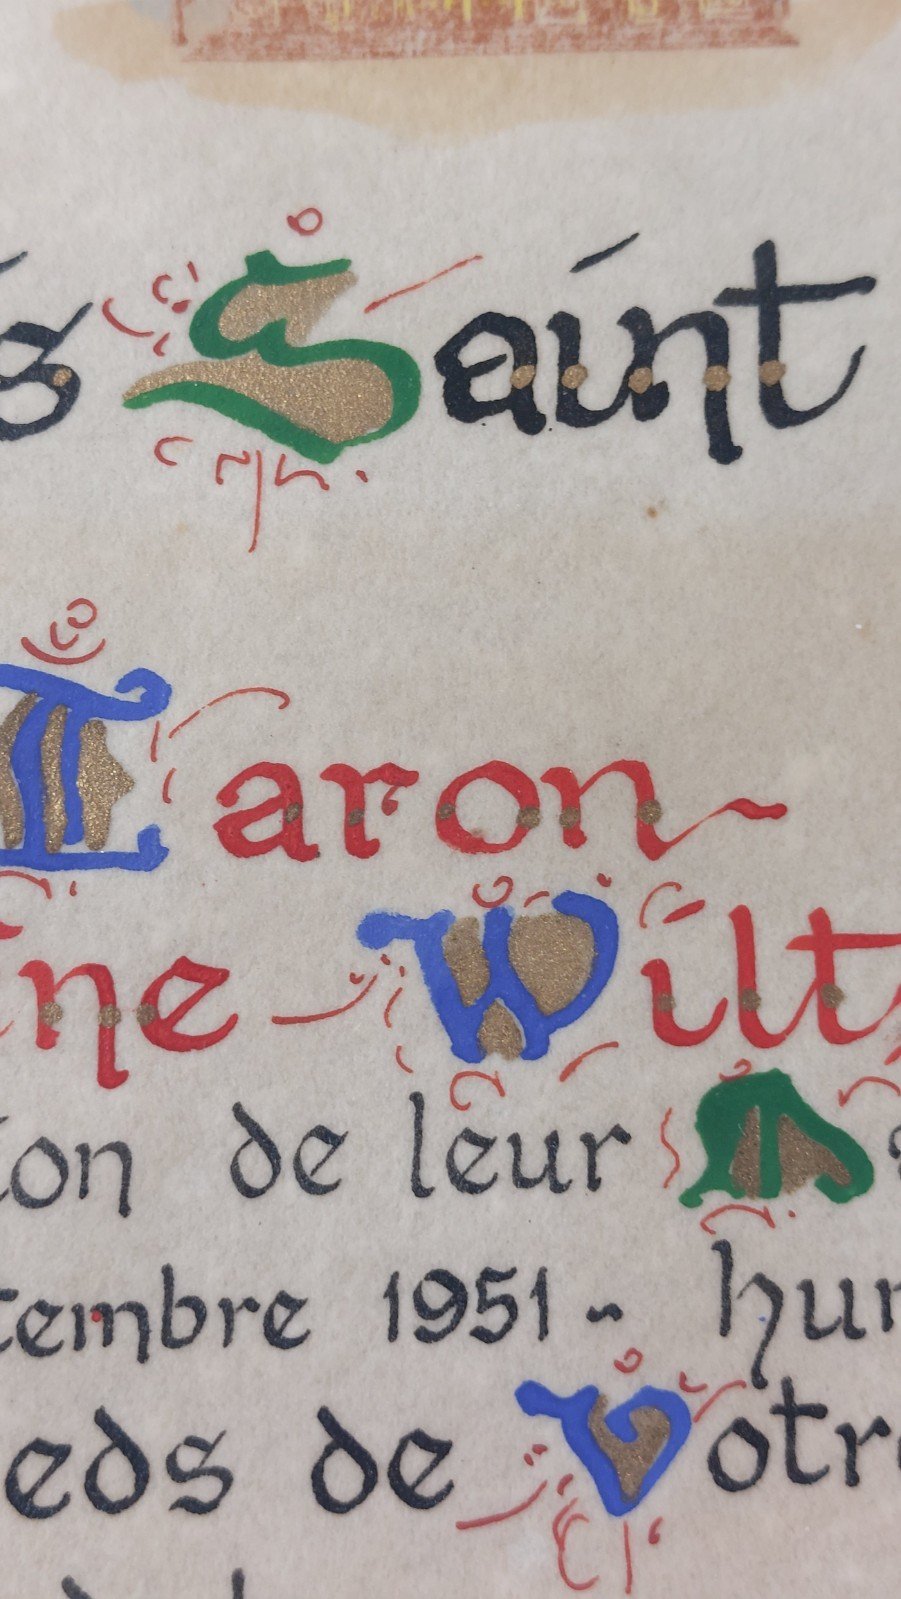 s Saint
Caron
ine Wilt
ion de leur M
tembre 1951 ~ hu
eds de Votre